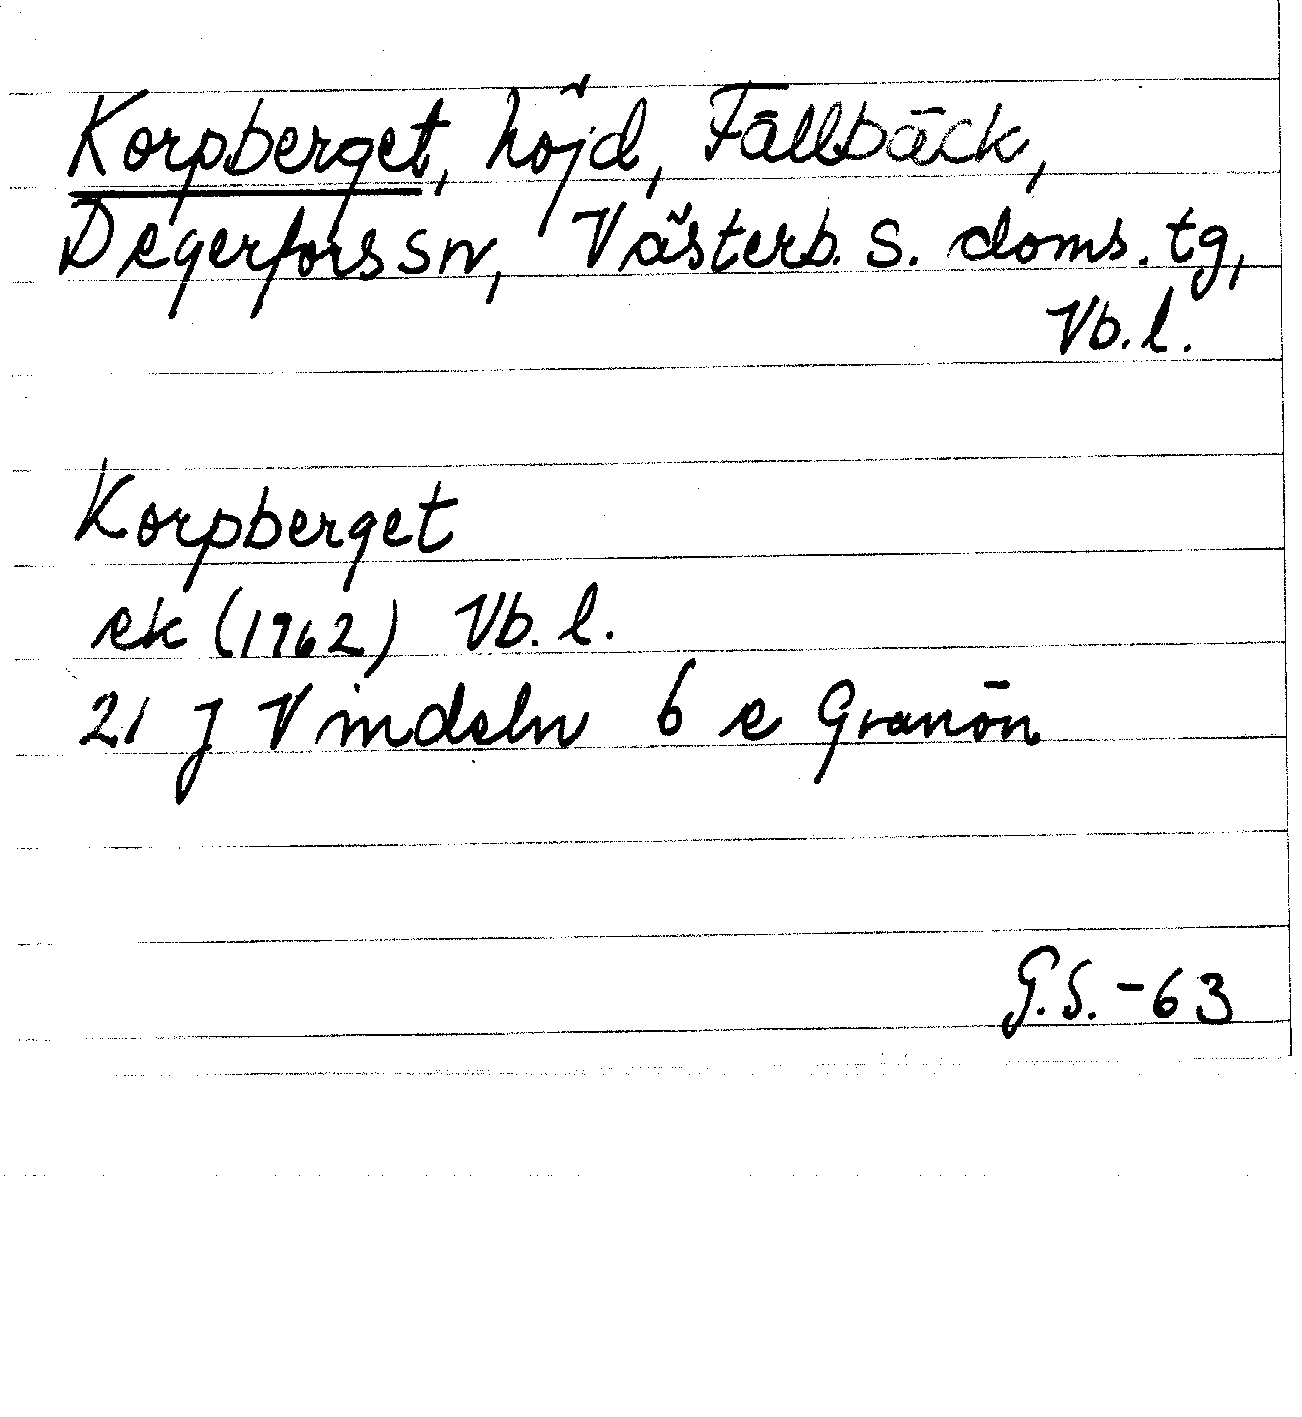 Korpberget, höjd, Fällbäck,
Degerfors sn, Västerb. s. doms. tg,
Vb. l.
Korpberget
ek (1962) Vb. l.
21 J Vindeln 6 e Granön
G.S. -63